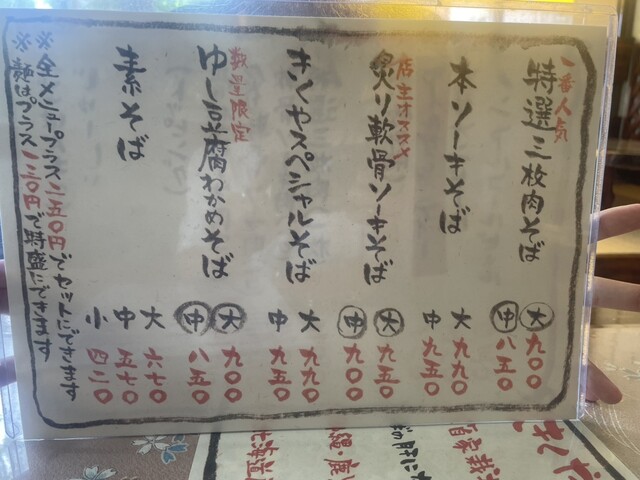 一番人気
特選三枚肉そば
大 九〇〇
中 八五〇
本ソーキそば
大 九九〇
中 九五〇
店主オススメ
炙り軟骨ソーキそば
大 九五〇
中 九〇〇
きくやスペシャルそば
大 九九〇
中 九五〇
数量限定
ゆし豆腐わかめそば
大 九〇〇
中 八五〇
素そば
大 六七〇
中 五七〇
小 四二〇
※全メニュープラス二五〇円でセットにできます
※麺はプラス一三〇円で特盛にできます
自家栽
北海道